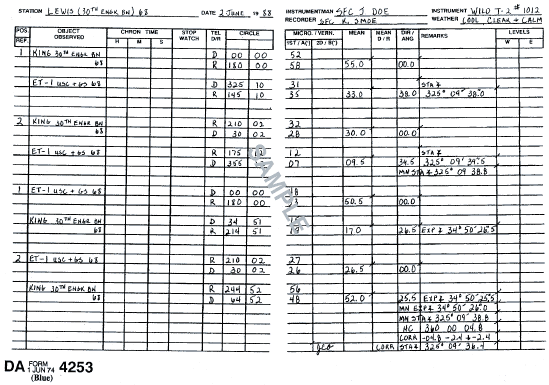 STATION LEWIS (30TH ENGR BN) 68 DATE 2 JUNE 19 88 INSTRUMENTMAN SFC J. DOE INSTRUMENT WILD T-2 # 1012
RECORDER SFC K. SMOE WEATHER COOL CLEAR + CALM
POS OBJECT OBSERVED CHRON TIME STOP WATCH TEL D/R CIRCLE MICRO./VERN. MEAN MEAN D/R DIR/ANG REMARKS LEVELS
REF. H M S 1ST/A(') 2D/B(") W E
1 KING 30TH ENGR BN D 00 00 52
68 R 180 00 58 55.0 00.0
ET-1 USC + GS 68 D 325 10 31 STA ∡
R 145 10 35 33.0 38.0 325° 09' 38.0
2 KING 30TH ENGR BN R 210 02 32
68 D 30 02 28 30.0 00.0
ET-1 USC + GS 68 R 175 12 STA ∡
D 355 07 09.5 39.5 325° 09' 39.5
MN STA ∡ 325° 09' 38.8
1 ET-1 USC + GS 68 D 00 00 48
R 180 00 50.5 00.0
KING 30TH ENGR BN D 34 51
68 R 214 51 19 17.0 26.5 EXP ∡ 34° 50' 26.5
2 ET-1 USC + GS 68 R 210 02 27
D 30 02 26 26.5 00.0
KING 30TH ENGR BN R 244 52 56
68 D 64 52 48 52.0 25.5 EXP ∡ 34° 50' 25.5
MN EXP ∡ 34° 50' 26.0
MN STA ∡ 325° 09' 38.8
HC 360 00 04.8
CORR -04.8 ÷ 2 = -2.4
CORR STA ∡ 325° 09' 36.4
SAMPLE
DA FORM 4253
1 JUN 74
(Blue)